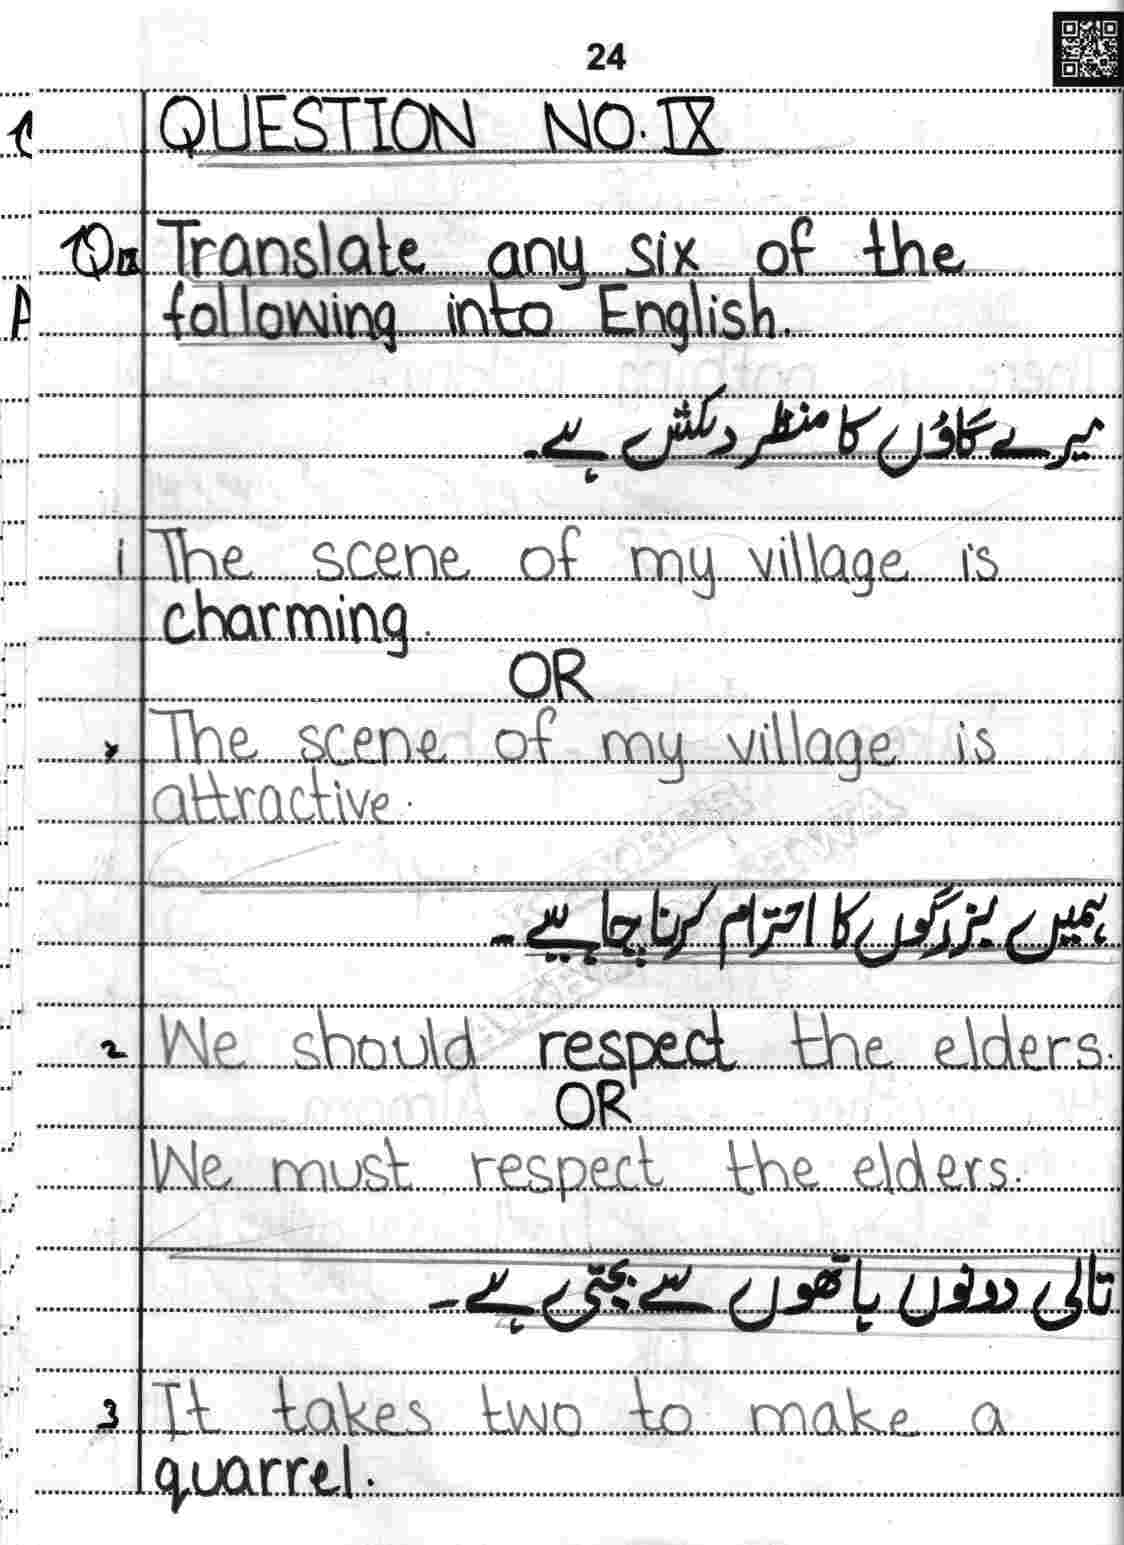 24
QUESTION NO. IX
Q IX Translate any six of the
following into English.
میرے گاؤں کا منظر دلکش ہے۔
i The scene of my village is
charming.
OR
The scene of my village is
attractive.
ہمیں بزرگوں کا احترام کرنا چاہیے۔
2 We should respect the elders.
OR
We must respect the elders.
تالی دونوں ہاتھوں سے بجتی ہے۔
3 It takes two to make a
quarrel.